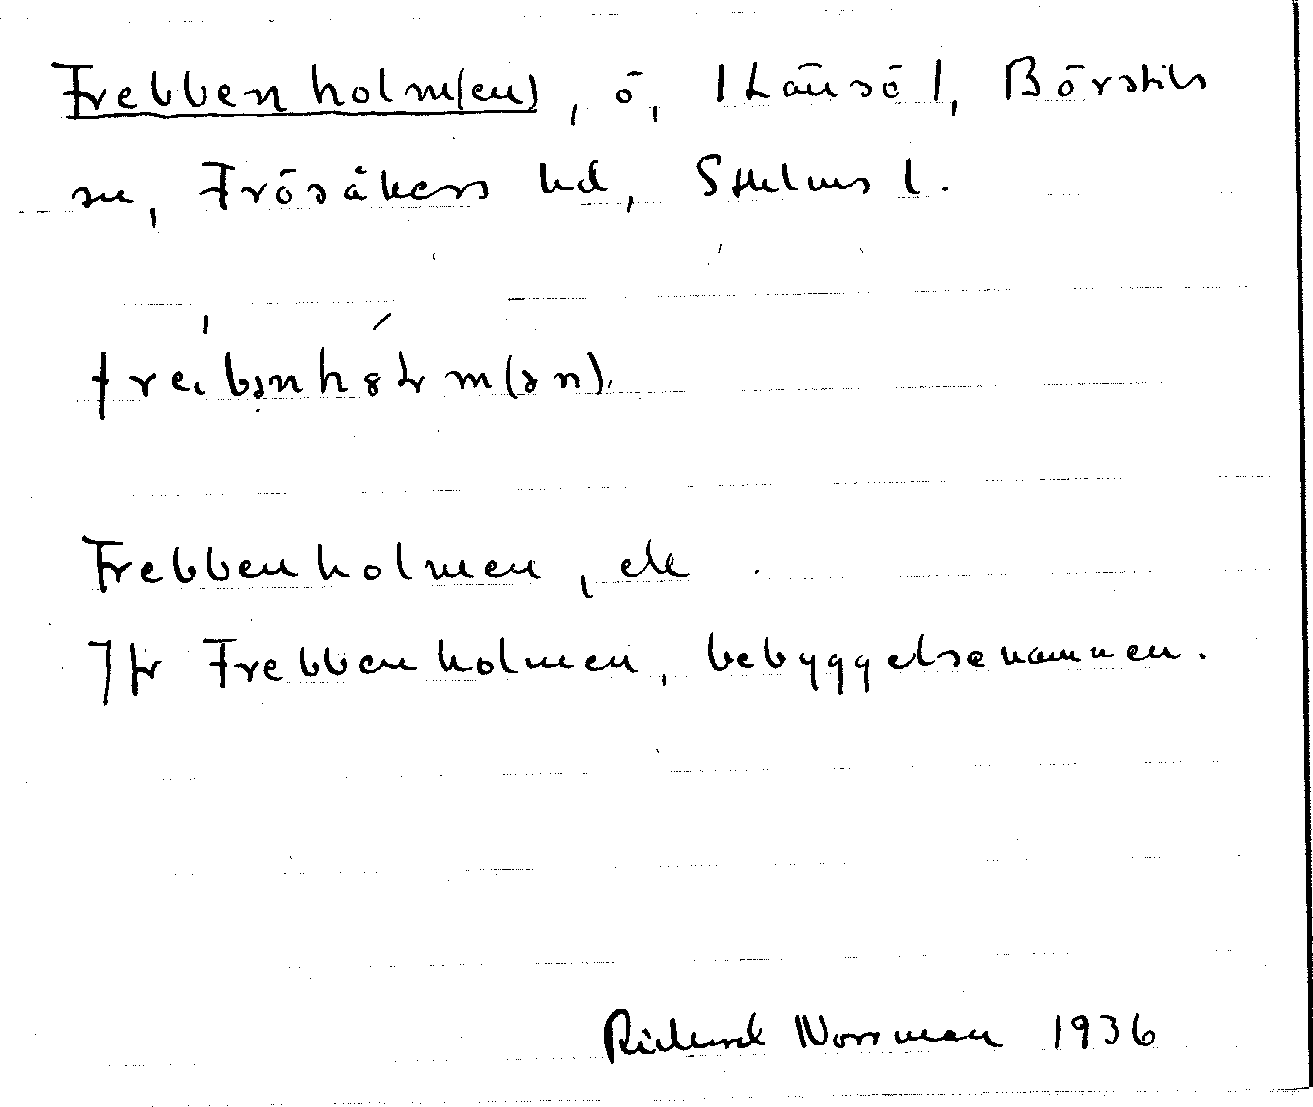 Frebbenholm(en), ö, /Länsö/, Börstils
sn, Frösåkers hd, Sthlms l.
Frebbenholmen, ek
Jfr Frebbenholmen, bebyggelsenamnen.
Richard Norrman 1936